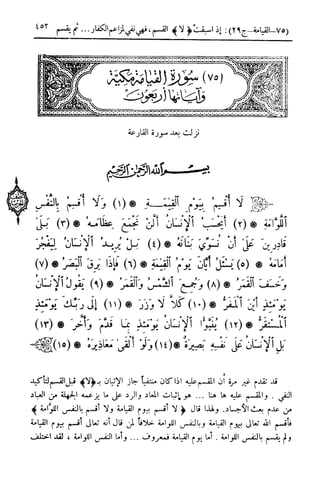 (٧٥–القيامة–ج٢٩): إذ اسبقت﴿ لا ﴾ القسم، فهي نفي لمزاعم الكفار ... ثم يقسم ٤٥٣
(٧٥) سُورَةُ القِيامَةِ مَكِيّة
وَآيَاتهَا أَرْبَعُونَ
نزلت بعد سورة القارعة
بِسْمِ اللهِ الرَّحْمَنِ الرَّحِيمِ
لَا أُقْسِمُ بِيَوْمِ الْقِيَامَةِ * (١) وَلَا أُقْسِمُ بِالنَّفْسِ
اللَّوَّامَةِ * (٢) أَيَحْسَبُ الْإِنْسَانُ أَلَّنْ نَجْمَعَ عِظَامَهُ * (٣) بَلَى
قَادِرِينَ عَلَى أَنْ نُسَوِّيَ بَنَانَهُ * (٤) بَلْ يُرِيدُ الْإِنْسَانُ لِيَفْجُرَ
أَمَامَهُ * (٥) يَسْئَلُ أَيَّانَ يَوْمُ الْقِيَامَةِ * (٦) فَإِذَا بَرِقَ الْبَصَرُ * (٧)
وَخَسَفَ الْقَمَرُ * (٨) وَجُمِعَ الشَّمْسُ وَالْقَمَرُ * (٩) يَقُولُ الْإِنْسَانُ
يَوْمَئِذٍ أَيْنَ الْمَفَرُّ * (١٠) كَلَّا لَا وَزَرَ * (١١) إِلَى رَبِّكَ يَوْمَئِذٍ
الْمُسْتَقَرُّ * (١٢) يُنَبَّؤُا الْإِنْسَانُ يَوْمَئِذٍ بِمَا قَدَّمَ وَأَخَّرَ * (١٣)
بَلِ الْإِنْسَانُ عَلَى نَفْسِهِ بَصِيرَةٌ * (١٤) وَلَوْ أَلْقَى مَعَاذِيرَهُ * (١٥)
قد تقدم غير مرة أن المقسم عليه اذا كان منتفياً جاز الإتيان بـ﴿لا﴾ قبل القسم لتأكيد
النفي . والمقسم عليه ها هنا ... هو إثبات المعاد والرد على ما يزعمه الجهلة من العباد
من عدم بعث الأجساد. ولهذا قال ﴿ لا أقسم بيوم القيامة ولا أقسم بالنفس اللوّامة ﴾
فأقسم الله تعالى بيوم القيامة وبالنفس اللوامة خلافاً لمن قال أنه تعالى أقسم بيوم القيامة
ولم يقسم بالنفس اللوامة . أما يوم القيامة فمعروف ... وأما النفس اللوامة ، لقد اختلف